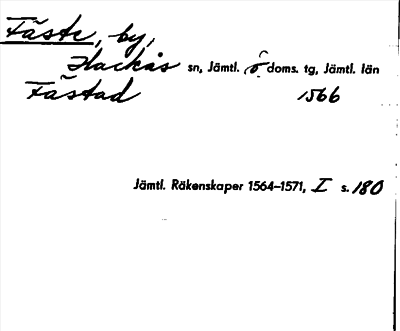 Fäste, by,
Hackås sn, Jämtl. ö doms. tg, Jämtl. län
Fästad 1566
Jämtl. Räkenskaper 1564–1571, I s. 180